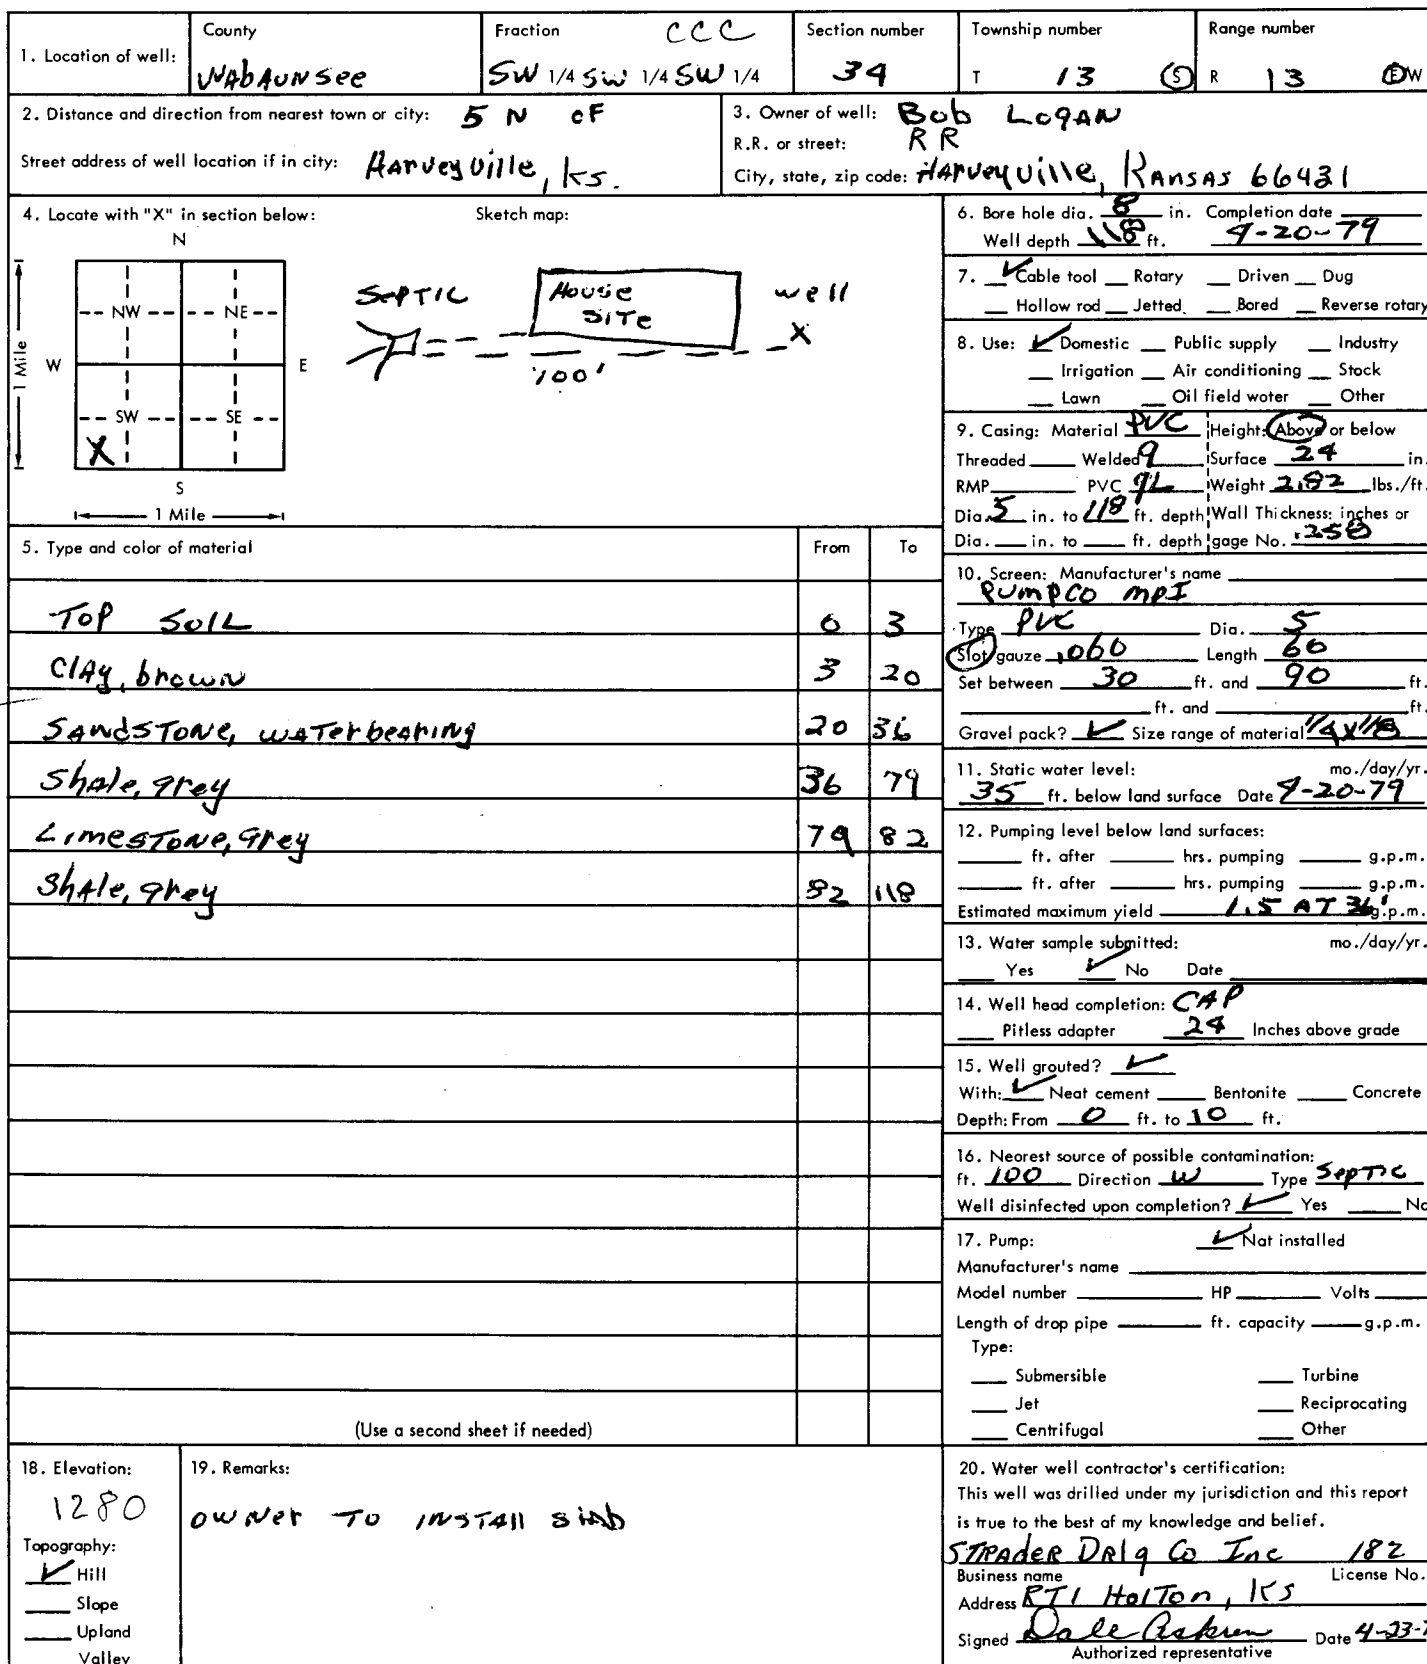 1. Location of well:
County
Wabaunsee
Fraction CCC
SW 1/4 SW 1/4 SW 1/4
Section number
34
Township number
T 13 S
Range number
R 13 E W
2. Distance and direction from nearest town or city: 5 N of
Street address of well location if in city: Harveyville, Ks.
3. Owner of well: Bob Logan
R.R. or street: RR
City, state, zip code: Harveyville, Kansas 66431
4. Locate with "X" in section below:
Sketch map:
N
NW NE
W E
SW SE
X
S
1 Mile
1 Mile
Septic
House
Site
well
X
100'
5. Type and color of material From To
Top Soil 0 3
Clay, brown 3 20
Sandstone, waterbearing 20 36
Shale, grey 36 79
Limestone, grey 79 82
Shale, grey 82 118
(Use a second sheet if needed)
6. Bore hole dia. 8 in. Completion date
Well depth 118 ft. 4-20-79
7. ✓ Cable tool Rotary Driven Dug
Hollow rod Jetted Bored Reverse rotary
8. Use: ✓ Domestic Public supply Industry
Irrigation Air conditioning Stock
Lawn Oil field water Other
9. Casing: Material PVC Height: Above or below
Threaded Welded Surface 24 in.
RMP PVC Weight 2.82 lbs./ft.
Dia. 5 in. to 118 ft. depth Wall Thickness: inches or
Dia. in. to ft. depth gage No. .258
10. Screen: Manufacturer's name
Pumpco MPI
Type PVC Dia. 5
Slot/gauze .060 Length 60
Set between 30 ft. and 90 ft.
ft. and ft.
Gravel pack? ✓ Size range of material 1/4 x 1/8
11. Static water level: mo./day/yr.
35 ft. below land surface Date 4-20-79
12. Pumping level below land surfaces:
ft. after hrs. pumping g.p.m.
ft. after hrs. pumping g.p.m.
Estimated maximum yield 1.5 AT 36' g.p.m.
13. Water sample submitted: mo./day/yr.
Yes ✓ No Date
14. Well head completion: CAP
Pitless adapter 24 Inches above grade
15. Well grouted? ✓
With: ✓ Neat cement Bentonite Concrete
Depth: From 0 ft. to 10 ft.
16. Nearest source of possible contamination:
ft. 100 Direction W Type Septic
Well disinfected upon completion? ✓ Yes No
17. Pump: ✓ Not installed
Manufacturer's name
Model number HP Volts
Length of drop pipe ft. capacity g.p.m.
Type:
Submersible Turbine
Jet Reciprocating
Centrifugal Other
18. Elevation:
1280
Topography:
✓ Hill
Slope
Upland
Valley
19. Remarks:
owner to install slab
20. Water well contractor's certification:
This well was drilled under my jurisdiction and this report
is true to the best of my knowledge and belief.
Strader Drlg Co Inc 182
Business name License No.
Address RT1 Holton, Ks
Signed Dale Askren Date 4-23-7
Authorized representative